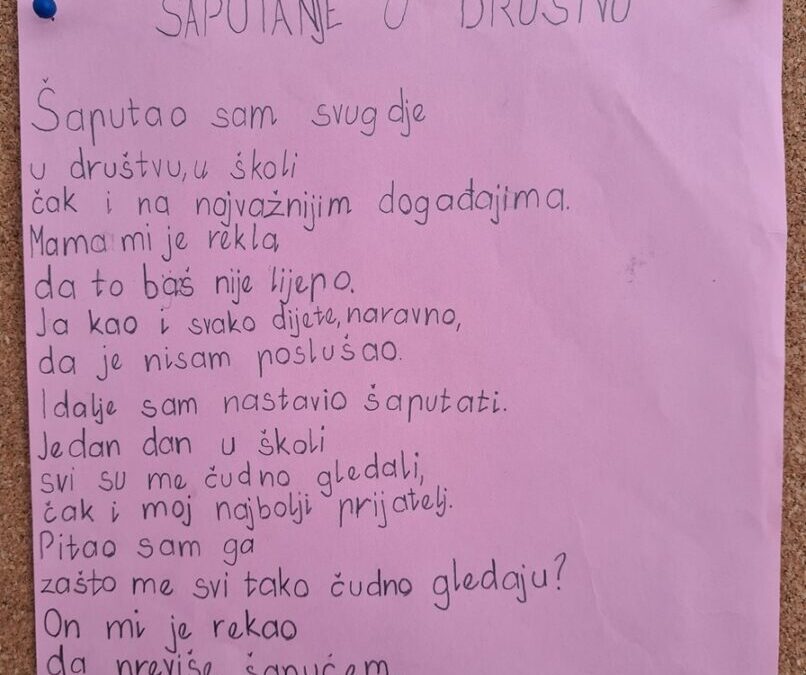 ŠAPUTANJE U DRUŠTVU
Šaputao sam svugdje
u društvu, u školi
čak i na najvažnijim događajima.
Mama mi je rekla
da to baš nije lijepo.
Ja kao i svako dijete, naravno,
da je nisam poslušao.
I dalje sam nastavio šaputati.
Jedan dan u školi
svi su me čudno gledali,
čak i moj najbolji prijatelj.
Pitao sam ga
zašto me svi tako čudno gledaju?
On mi je rekao
da previše šapućem